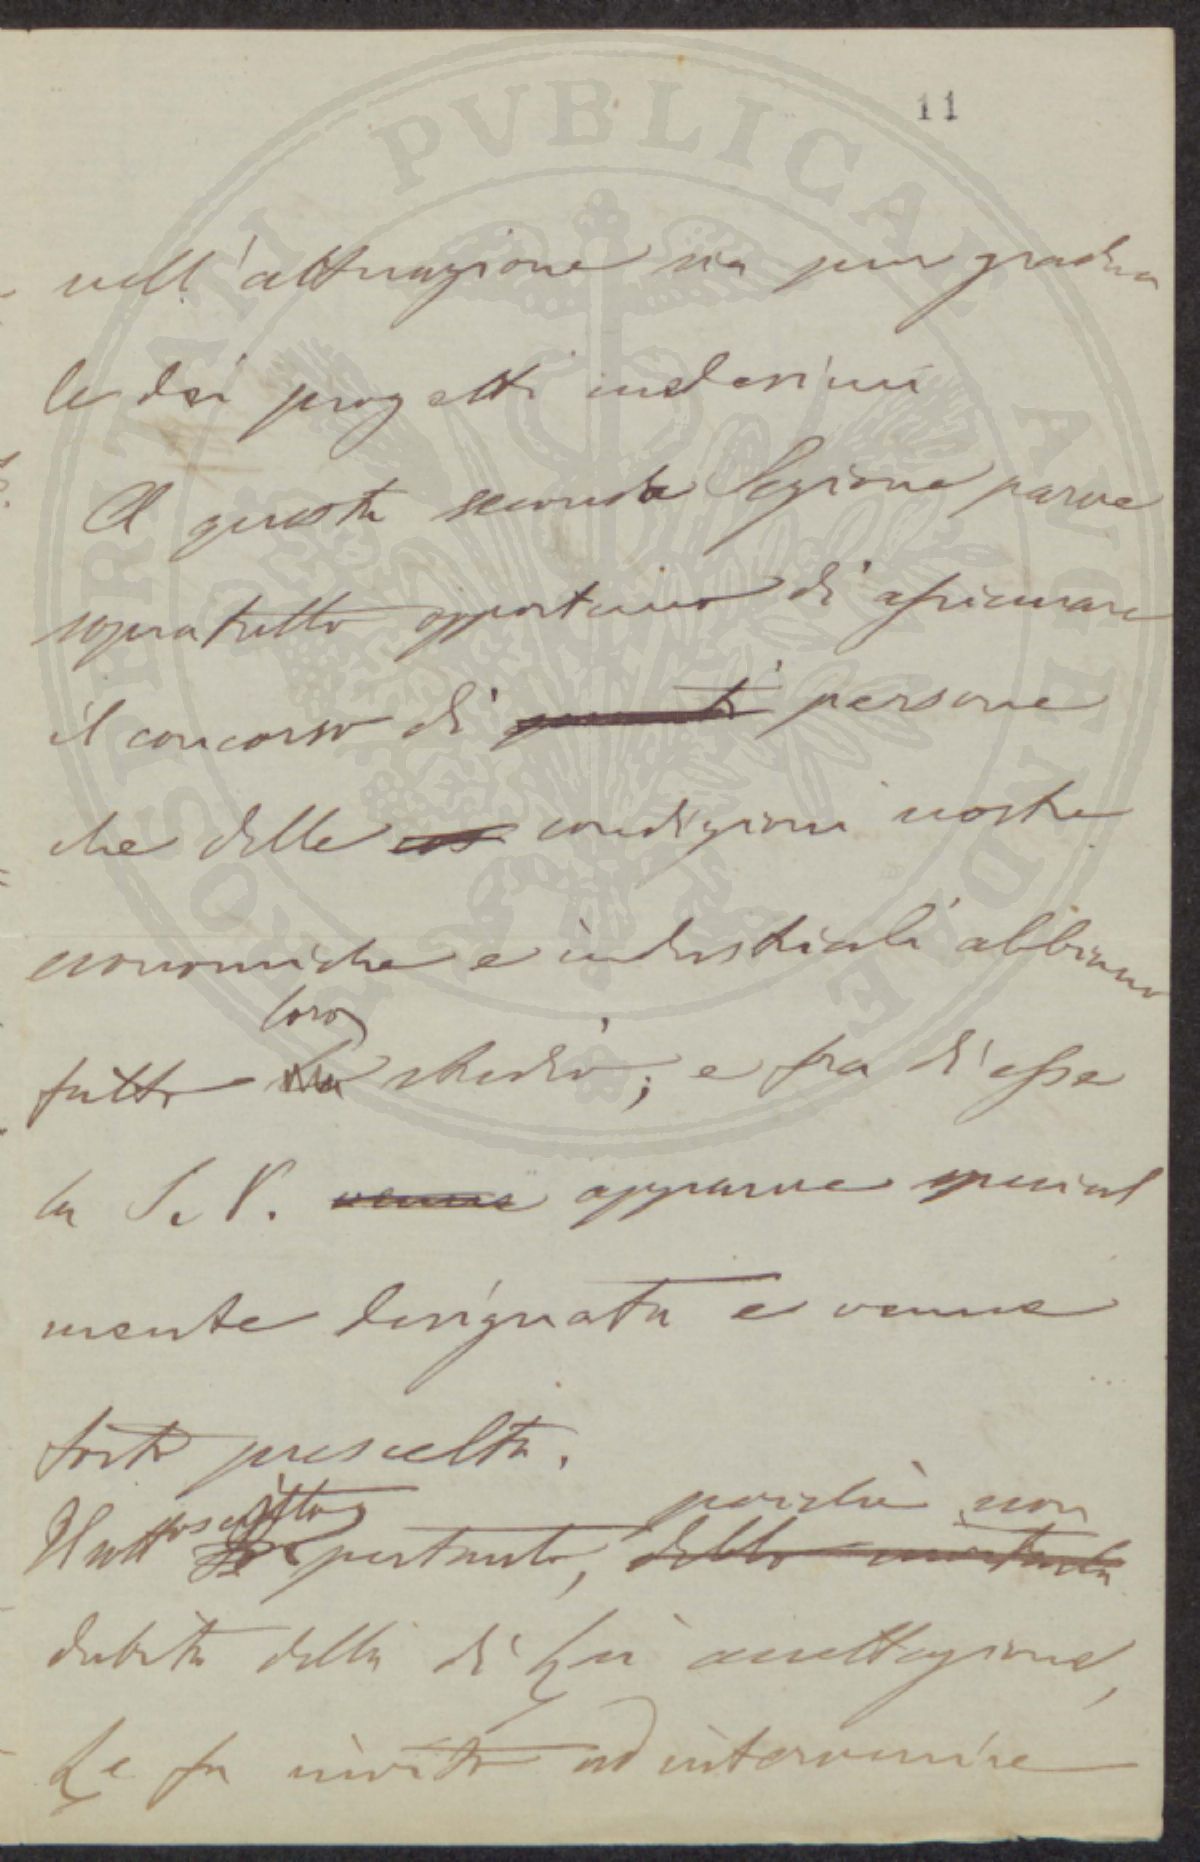 11
nell'attuazione sia pur gradua
le dei progetti medesimi
A questa seconda Sezione parve
sopratutto opportuno di assicurare
il concorso di persone
che delle condizioni nostre
economiche e industriali abbiano
loro
fatto studio; e fra di esse
la S. V. venne apparve special
mente designata e venne
tosto prescelta.
poichè non
Il sottoscritto pertanto,
dubita della di Lei accettazione,
Le fa invito ad intervenire
PROSPERITATI PVBLICAE AVGENDAE